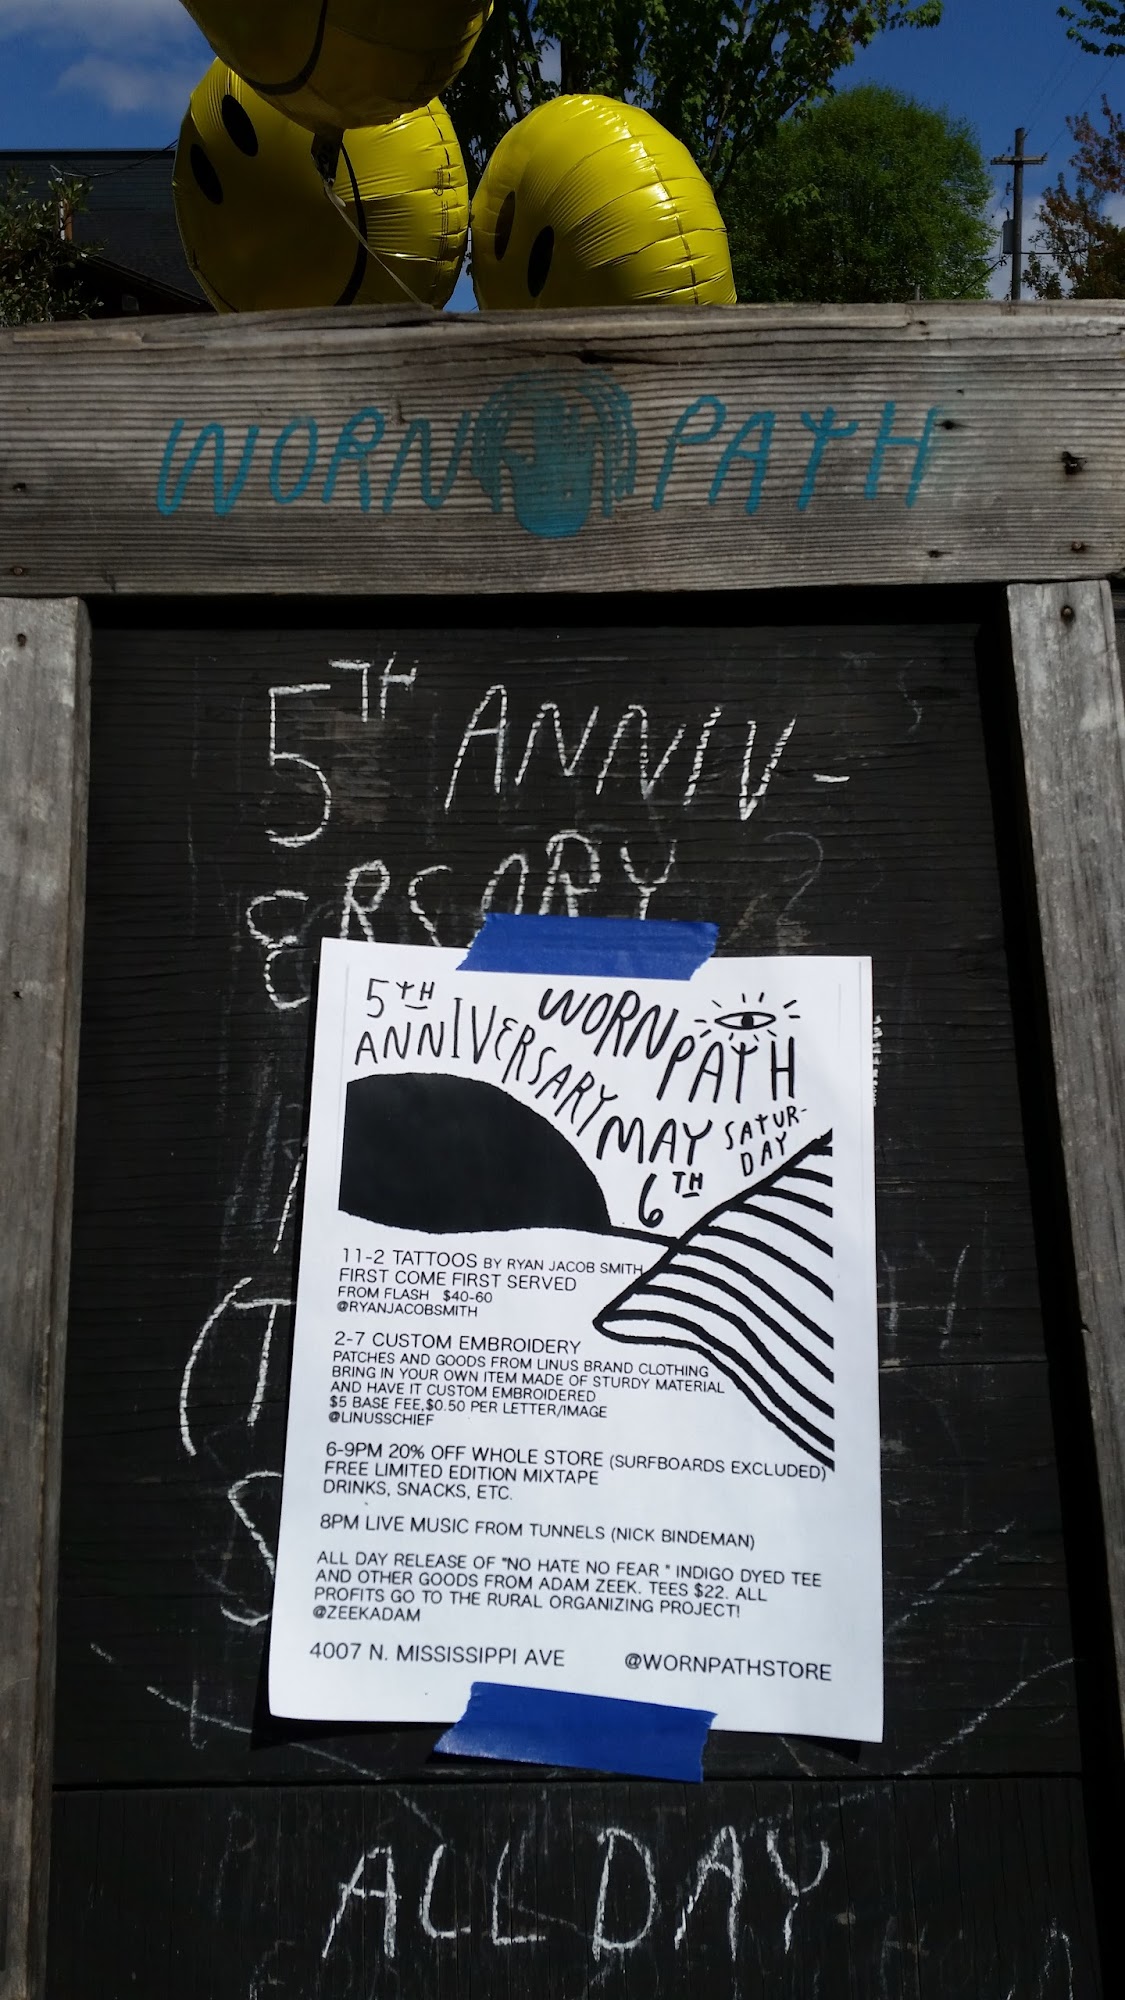 WORN PATH
5TH ANNIV-
ERSARY
5TH
ANNIVERSARY
WORN
PATH
MAY
6TH
SATUR-
DAY
11-2 TATTOOS BY RYAN JACOB SMITH
FIRST COME FIRST SERVED
FROM FLASH $40-60
@RYANJACOBSMITH
2-7 CUSTOM EMBROIDERY
PATCHES AND GOODS FROM LINUS BRAND CLOTHING
BRING IN YOUR OWN ITEM MADE OF STURDY MATERIAL
AND HAVE IT CUSTOM EMBROIDERED
$5 BASE FEE,$0.50 PER LETTER/IMAGE
@LINUSSCHIEF
6-9PM 20% OFF WHOLE STORE (SURFBOARDS EXCLUDED)
FREE LIMITED EDITION MIXTAPE
DRINKS, SNACKS, ETC.
8PM LIVE MUSIC FROM TUNNELS (NICK BINDEMAN)
ALL DAY RELEASE OF "NO HATE NO FEAR " INDIGO DYED TEE
AND OTHER GOODS FROM ADAM ZEEK. TEES $22. ALL
PROFITS GO TO THE RURAL ORGANIZING PROJECT!
@ZEEKADAM
4007 N. MISSISSIPPI AVE @WORNPATHSTORE
ALL DAY